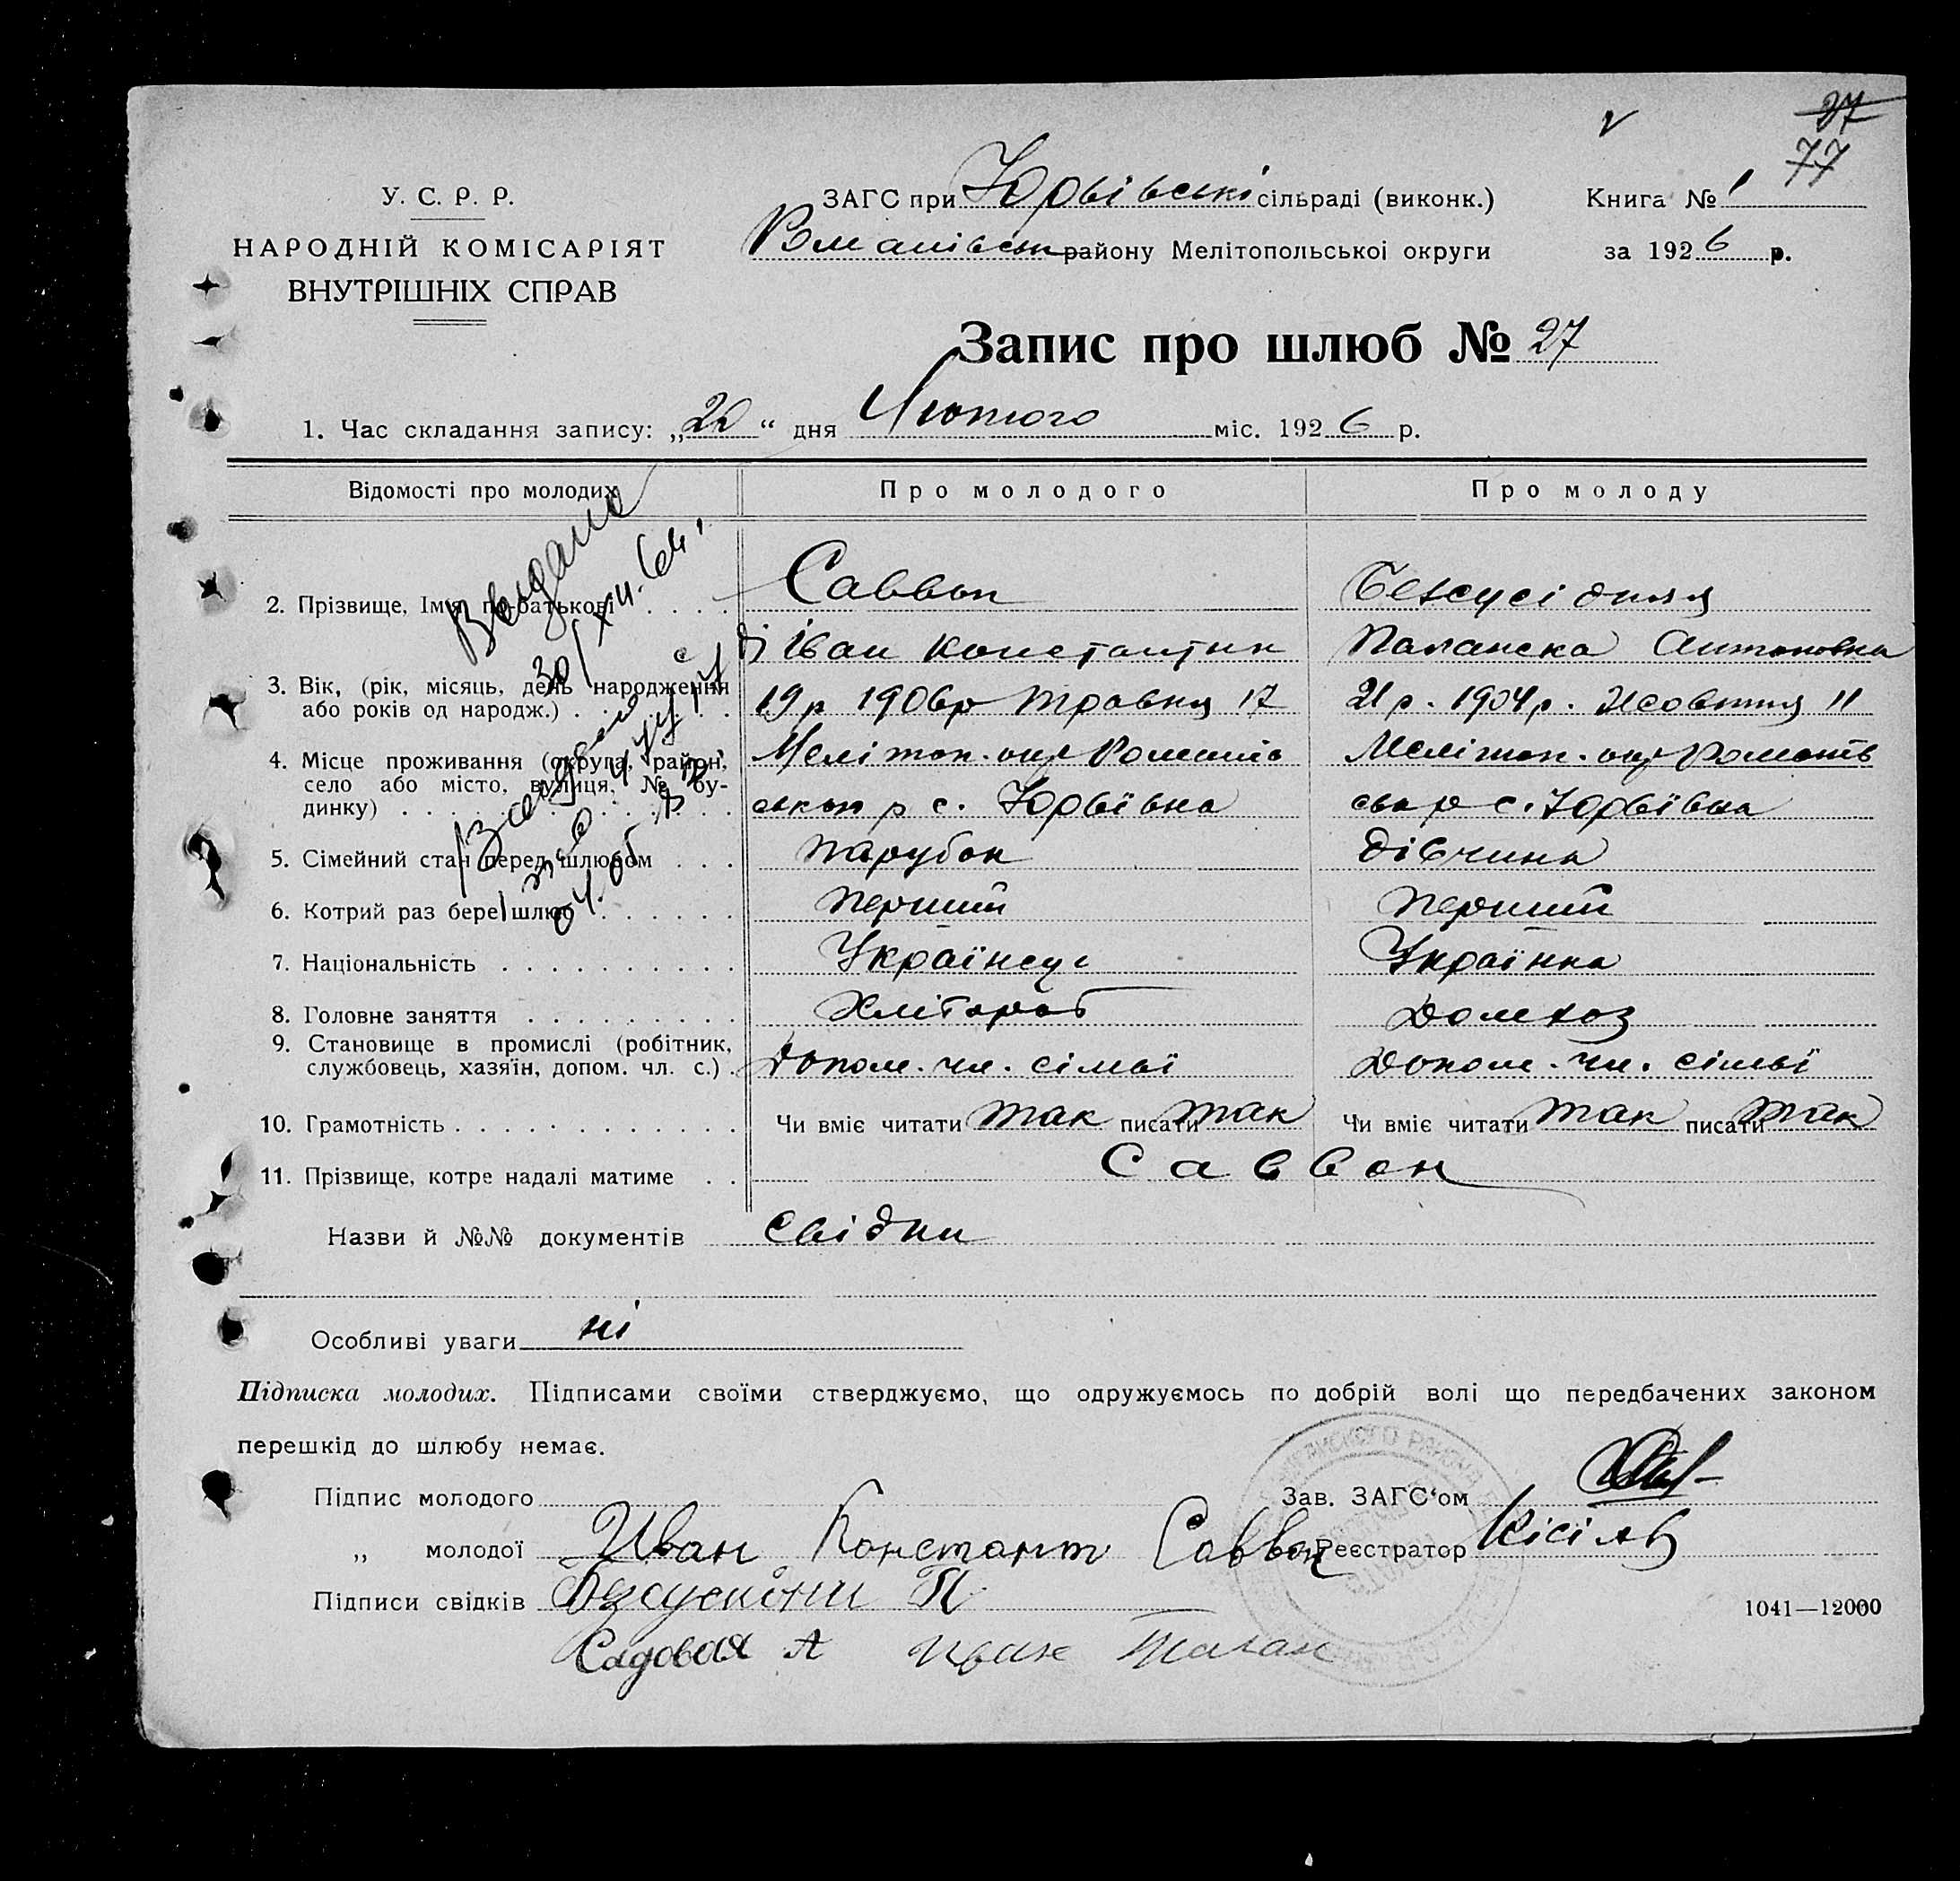 27
77
У. С. Р. Р.
НАРОДНІЙ КОМІСАРІЯТ
ВНУТРІШНІХ СПРАВ
ЗАГС при Юрьівські сільраді (виконк.)
району Мелітопольської округи
Книга № 1
за 1926 р.
Запис про шлюб № 27
1. Час складання запису: „20“ дня Лютого міс. 1926 р.
Відомості про молодих
Про молодого
Про молоду
2. Прізвище, Імя, по-батькові . . . .
Саввон
Іван Константин
Паланска Антоновна
3. Вік, (рік, місяць, день народження
або років од народж.) . . . . . . .
19 р 1906 р травня 17
21 р. 1904 р. Жовтня 11
4. Місце проживання (округа, район,
село або місто, вулиця, № бу-
динку) . . . . . . . . . . . . . .
Мелітоп. окр
р с. Юрьївка
Меліт оп. окр
р с. Юрьївка
5. Сімейний стан перед шлюбом . . .
парубок
дівчина
6. Котрий раз бере шлюб . . . . . .
перший
перший
7. Національність . . . . . . . . . .
Українець
Українка
8. Головне заняття . . . . . . . . .
Хлібороб
Домхоз
9. Становище в промислі (робітник,
службовець, хазяїн, допом. чл. с.) .
Допом. чл. сімьї
Допом. чл. сімьї
10. Грамотність . . . . . . . . . . . .
Чи вміє читати так писати так
Чи вміє читати так писати так
11. Прізвище, котре надалі матиме . .
Саввон
Назви й №№ документів свідки
Особливі уваги ні
Видано
30/XII.64.
Підписка молодих. Підписами своїми стверджуємо, що одружуємось по добрій волі що передбачених законом
перешкід до шлюбу немає.
Підпис молодого
„ молодої Иван Констант Саввон
Підписи свідків
Садовая А Иван
Зав. ЗАГС‘ом
Реєстратор
1041—12000